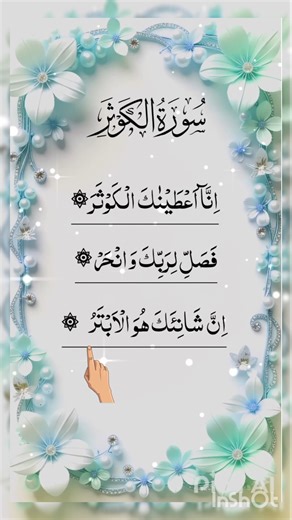 سُورَةُ الْكَوْثَرِ
اِنَّاۤ اَعْطَيْنٰكَ الْكَوْثَرَ ۞
فَصَلِّ لِرَبِّكَ وَانْحَرْ ۞
اِنَّ شَانِئَكَ هُوَ الْاَبْتَرُ ۞
InShOt